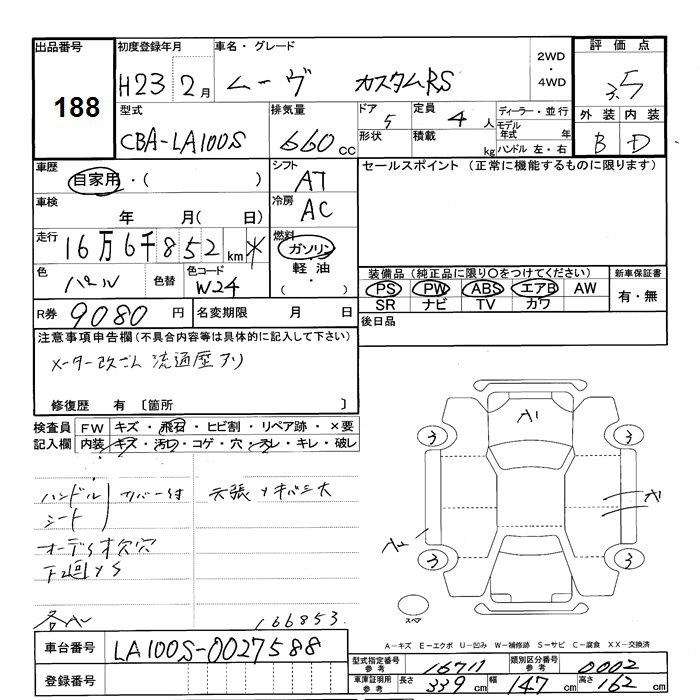 出品番号 初度登録年月 車名・グレード 2WD ・ 4WD 評価点
188 H23 2月 ムーヴ カスタムRS 3.5
型式 排気量 ドア 定員 ディーラー・並行 外装 内装
CBA-LA100S 660cc 5 4人 モデル年式 年 B D
形状 積載 kg ハンドル 左・右
車歴 シフト セールスポイント (正常に機能するものに限ります)
自家用・( ) AT
車検 年 月( 日) 冷房 AC
走行 16万6千852km 燃料 ガソリン
軽油
・( )
色 パール 色替 色コード W24
装備品 (純正品に限り○をつけてください) 新車保証書
PS PW ABS エアB AW 有・無
SR ナビ TV カワ
R券 9080円 名変期限 月 日 後日品
注意事項申告欄 (不具合内容等は具体的に記入して下さい)
メーター改ざん 流通歴アリ
修復歴 有 〔箇所 〕
検査員記入欄 FW キズ・飛石・ヒビ割・リペア跡・×要
内装 キズ・汚れ・コゲ・穴・スレ・キレ・破レ
ハンドル カバー付 天張
シート
A1
3 3
A2
3 3
スペア
166853
A-キズ E-エクボ U-凹み W-補修跡 S-サビ C-腐食 XX-交換済
車台番号 LA100S-0027588
登録番号
型式指定番号 参考 16711 類別区分番号 参考 0002
車庫証明用 参考 長さ 339cm 幅 147cm 高さ 162cm